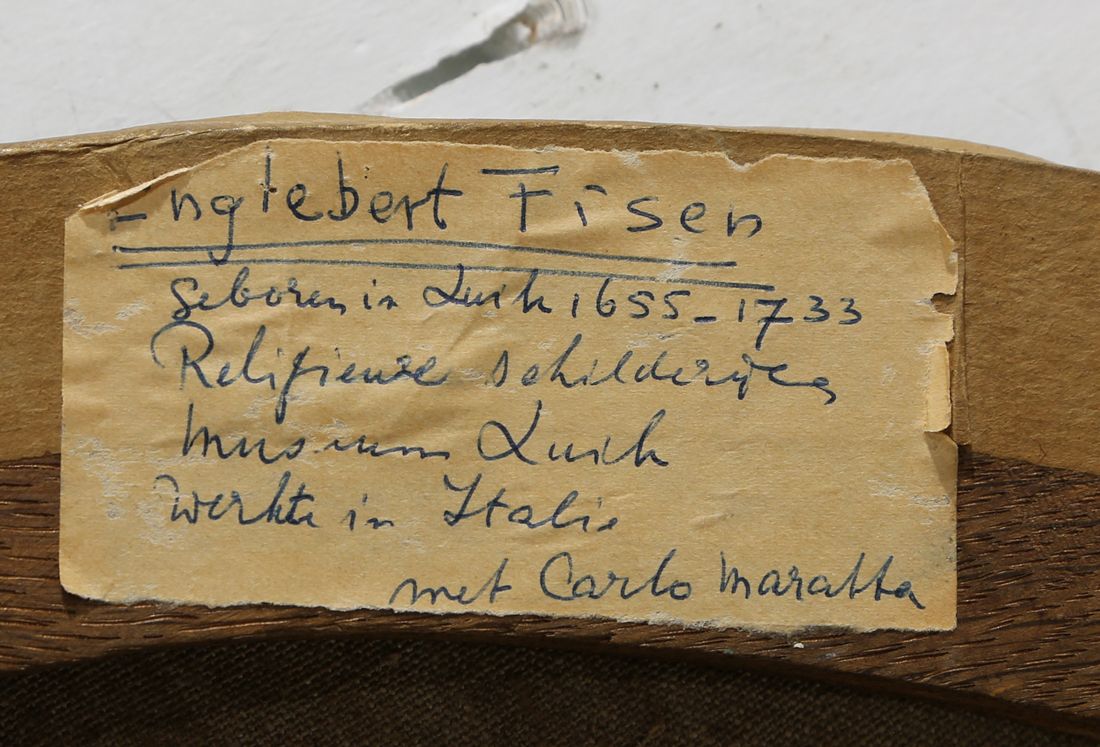 Englebert Fisen
geboren in Luik 1655-1733
Religieuze schilderijen
Museum Luik
werkte in Italie
met Carlo Maratta